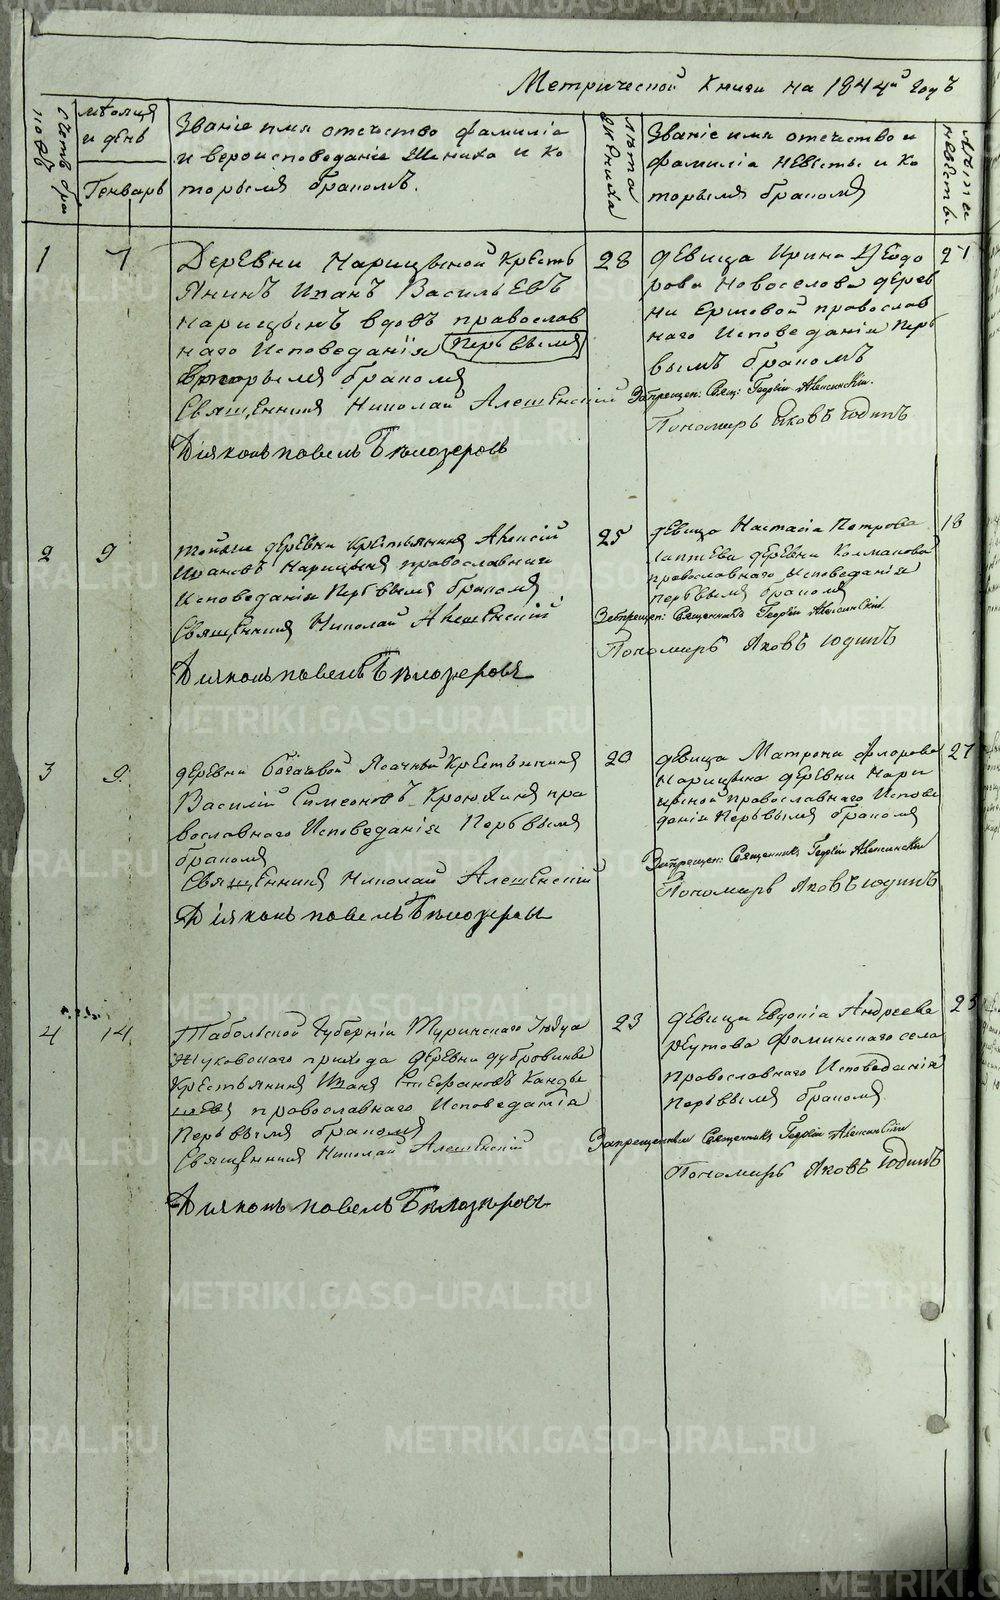 Метрической книги на 1844й годъ
счетъ бра
ковъ
мѣсяцъ
и день
Генварь
Званіе имя отечество фамиліа
и вероисповеданіе Жениха и ко
торымъ бракомъ.
лѣта
жениха
Званіе имя отечество и
фамиліа невесты и ко
торымъ бракомъ
лѣта
невѣсты
1
7
Деревни Нарицыной кресть
янинъ Иванъ Васильевъ
Нарицынъ вдовъ православ
наго Исповеданія первымъ
вторымъ бракомъ
Священникъ Николай Алешенскій
Діяконъ павелъ Бѣлозеровъ
28
девица Ирина Ѳеодо
рова Новоселова дерев
ни Ершовой православ
наго Исповеданія пер
вымъ бракомъ
Запрещен: Свящ: Георгій
Пономарь Яковъ Юдинъ
21
2
9
тойже деревни крестьянинъ Алексій
Ивановъ Нарицынъ православнаго
Исповеданіи первымъ бракомъ
Священникъ Николай Алешенскій
Діяконъ павелъ Бѣлозеровъ
25
девица Настасіа Петрова
лаптева деревни Колмакова
православнаго Исповеданія
первымъ бракомъ
Запрещен: Священникъ Георгій
Пономарь Яковъ Юдинъ
18
3
9
деревни Богачевой Ясачный крестьянинъ
Василій Симеоновъ Крохинъ пра
вославнаго Исповеданія первымъ
бракомъ
Священникъ Николай Алешенскій
Діяконъ павелъ Бѣлозеровъ
20
девица Матрона флорова
Нарицына деревни Нари
цыной православнаго Испове
данія первымъ бракомъ
Запрещен: Священникъ Георгій
Пономарь Яковъ Юдинъ
27
4
14
Табольской Губерніи Туринскаго Уезда
Жуковскаго прихода деревни дубровиной
крестьянинъ Иванъ Стефановъ
православнаго Исповеданія
первымъ бракомъ
Священникъ Николай Алешенскій
Діяконъ павелъ Бѣлозеровъ
23
девица Евдокіа Андреева
Реутова Фоминскаго села
православнаго Исповеданія
первымъ бракомъ
Священникъ Георгій
Пономарь Яковъ Юдинъ
25
METRIKI.GASO-URAL.RU